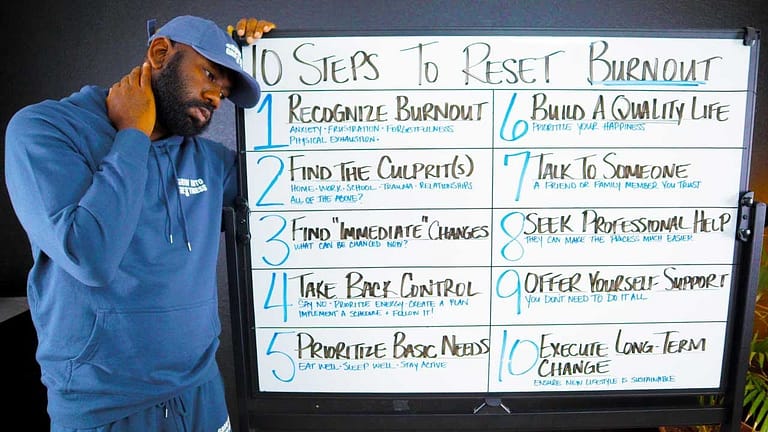 10 STEPS TO RESET BURNOUT
1 RECOGNIZE BURNOUT
ANXIETY - FRUSTRATION - FORGETFULNESS
PHYSICAL EXHAUSTION -
2 FIND THE CULPRIT(S)
HOME - WORK - SCHOOL - TRAUMA - RELATIONSHIPS
ALL OF THE ABOVE?
3 FIND "IMMEDIATE" CHANGES
WHAT CAN BE CHANGED NOW?
4 TAKE BACK CONTROL
SAY NO - PRIORITIZE ENERGY - CREATE A PLAN
IMPLEMENT A SCHEDULE + FOLLOW IT!
5 PRIORITIZE BASIC NEEDS
EAT WELL - SLEEP WELL - STAY ACTIVE
6 BUILD A QUALITY LIFE
PRIORITIZE YOUR HAPPINESS
7 TALK TO SOMEONE
A FRIEND OR FAMILY MEMBER YOU TRUST
8 SEEK PROFESSIONAL HELP
THEY CAN MAKE THE PROCESS MUCH EASIER
9 OFFER YOURSELF SUPPORT
YOU DON'T NEED TO DO IT ALL
10 EXECUTE LONG-TERM
CHANGE
ENSURE NEW LIFESTYLE IS SUSTAINABLE